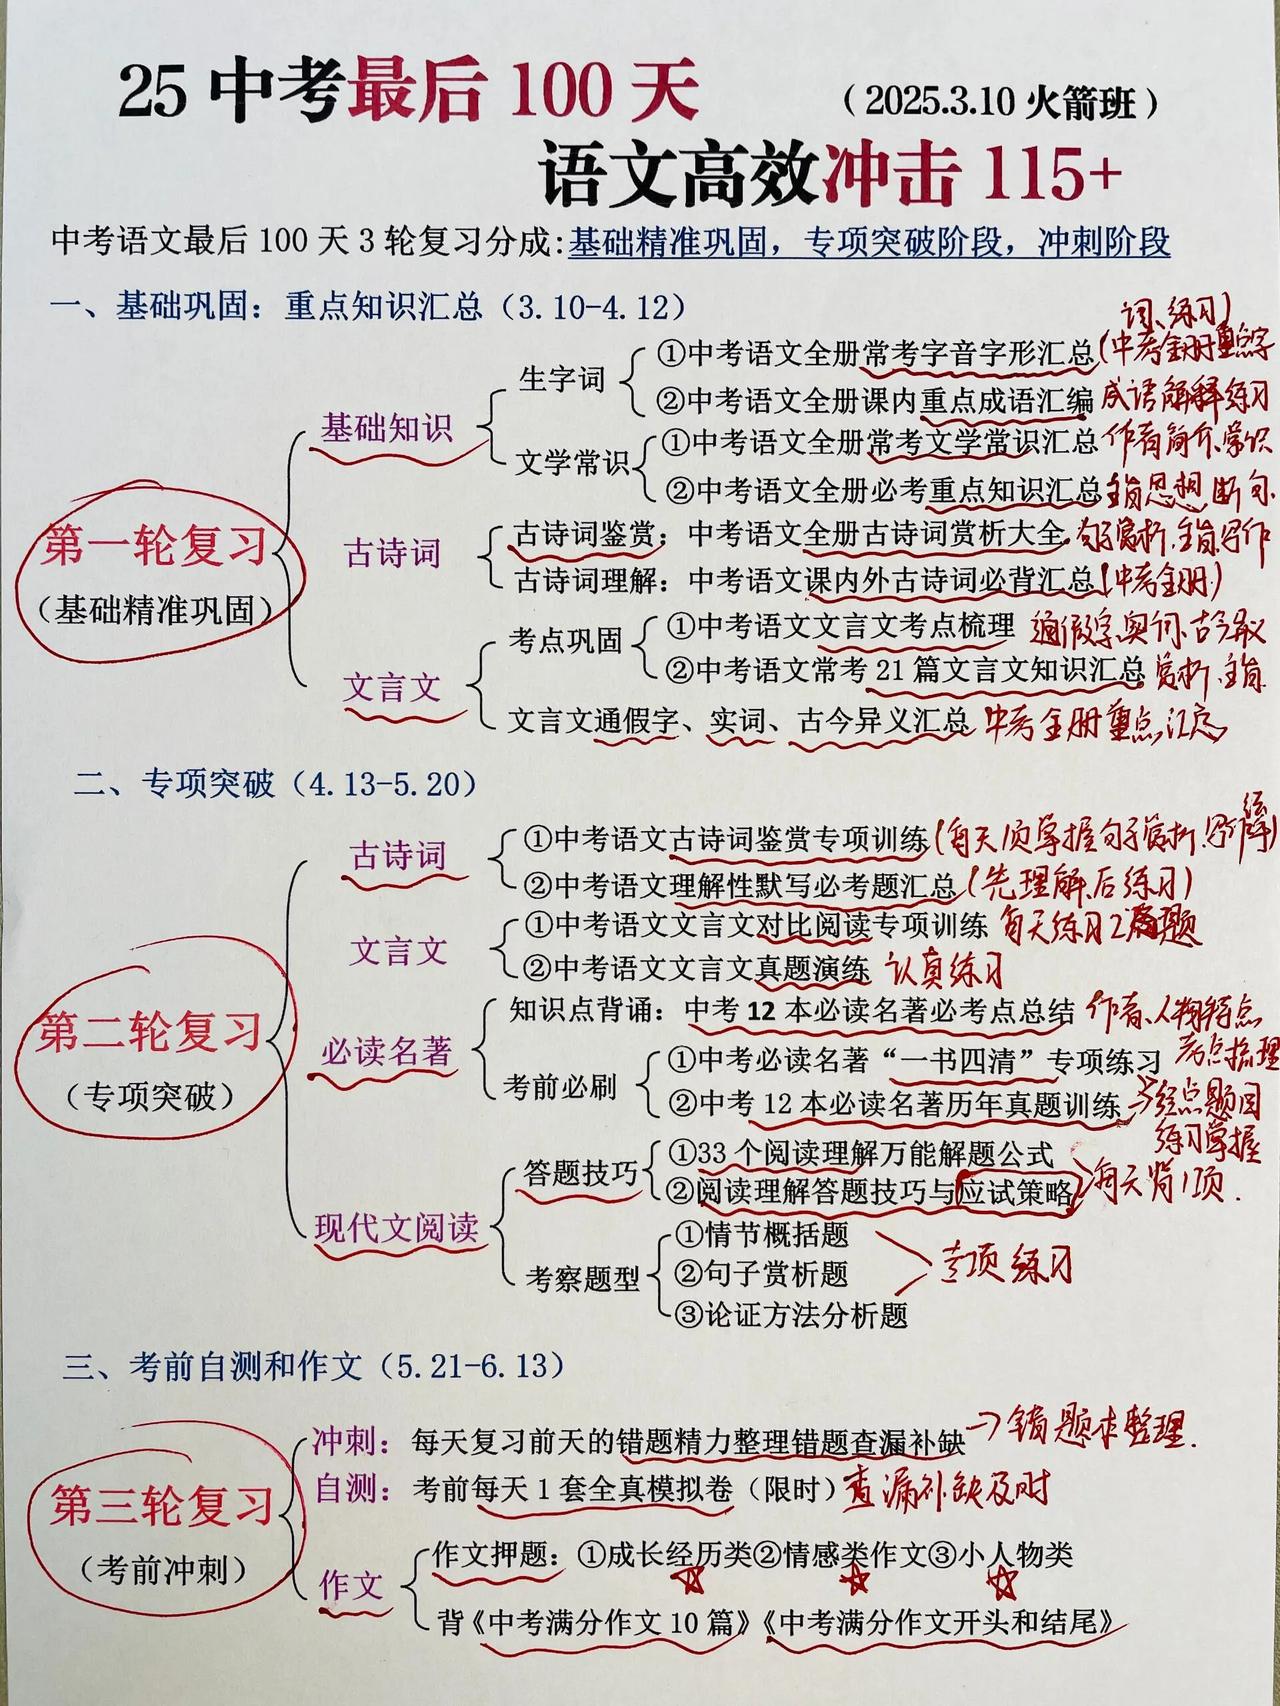 25中考最后100天
（2025.3.10火箭班）
语文高效冲击115+
中考语文最后100天3轮复习分成:基础精准巩固，专项突破阶段，冲刺阶段
一、基础巩固：重点知识汇总（3.10-4.12）
词、练习)
生字词
①中考语文全册常考字音字形汇总(中考全册重点字
②中考语文全册课内重点成语汇编 成语解释练习
基础知识
文学常识
①中考语文全册常考文学常识汇总 作者简介、常识
②中考语文全册必考重点知识汇总 主旨思想 断句
第一轮复习
（基础精准巩固）
古诗词
古诗词鉴赏：中考语文全册古诗词赏析大全 句子赏析、主旨、写作
古诗词理解：中考语文课内外古诗词必背汇总(中考全册)
文言文
考点巩固
①中考语文文言文考点梳理 通假字、实词、古今异义
②中考语文常考21篇文言文知识汇总 赏析、主旨
文言文通假字、实词、古今异义汇总 中考全册重点汇总
二、专项突破（4.13-5.20）
古诗词
①中考语文古诗词鉴赏专项训练(每天须掌握句子赏析
②中考语文理解性默写必考题汇总(先理解、后练习)
文言文
①中考语文文言文对比阅读专项训练 每天练习2篇题
②中考语文文言文真题演练 认真练习
第二轮复习
（专项突破）
必读名著
知识点背诵：中考12本必读名著必考点总结 作者、人物特点
考点梳理
考前必刷
①中考必读名著“一书四清”专项练习
②中考12本必读名著历年真题训练→经点题目
练习掌握
现代文阅读
答题技巧
①33个阅读理解万能解题公式
②阅读理解答题技巧与应试策略 每天背1项.
考察题型
①情节概括题
②句子赏析题 专项练习
③论证方法分析题
三、考前自测和作文（5.21-6.13）
第三轮复习
（考前冲刺）
冲刺：每天复习前天的错题精力整理错题查漏补缺→错题本整理.
自测：考前每天1套全真模拟卷（限时）查漏补缺及时
作文
作文押题：①成长经历类②情感类作文③小人物类
背《中考满分作文10篇》《中考满分作文开头和结尾》